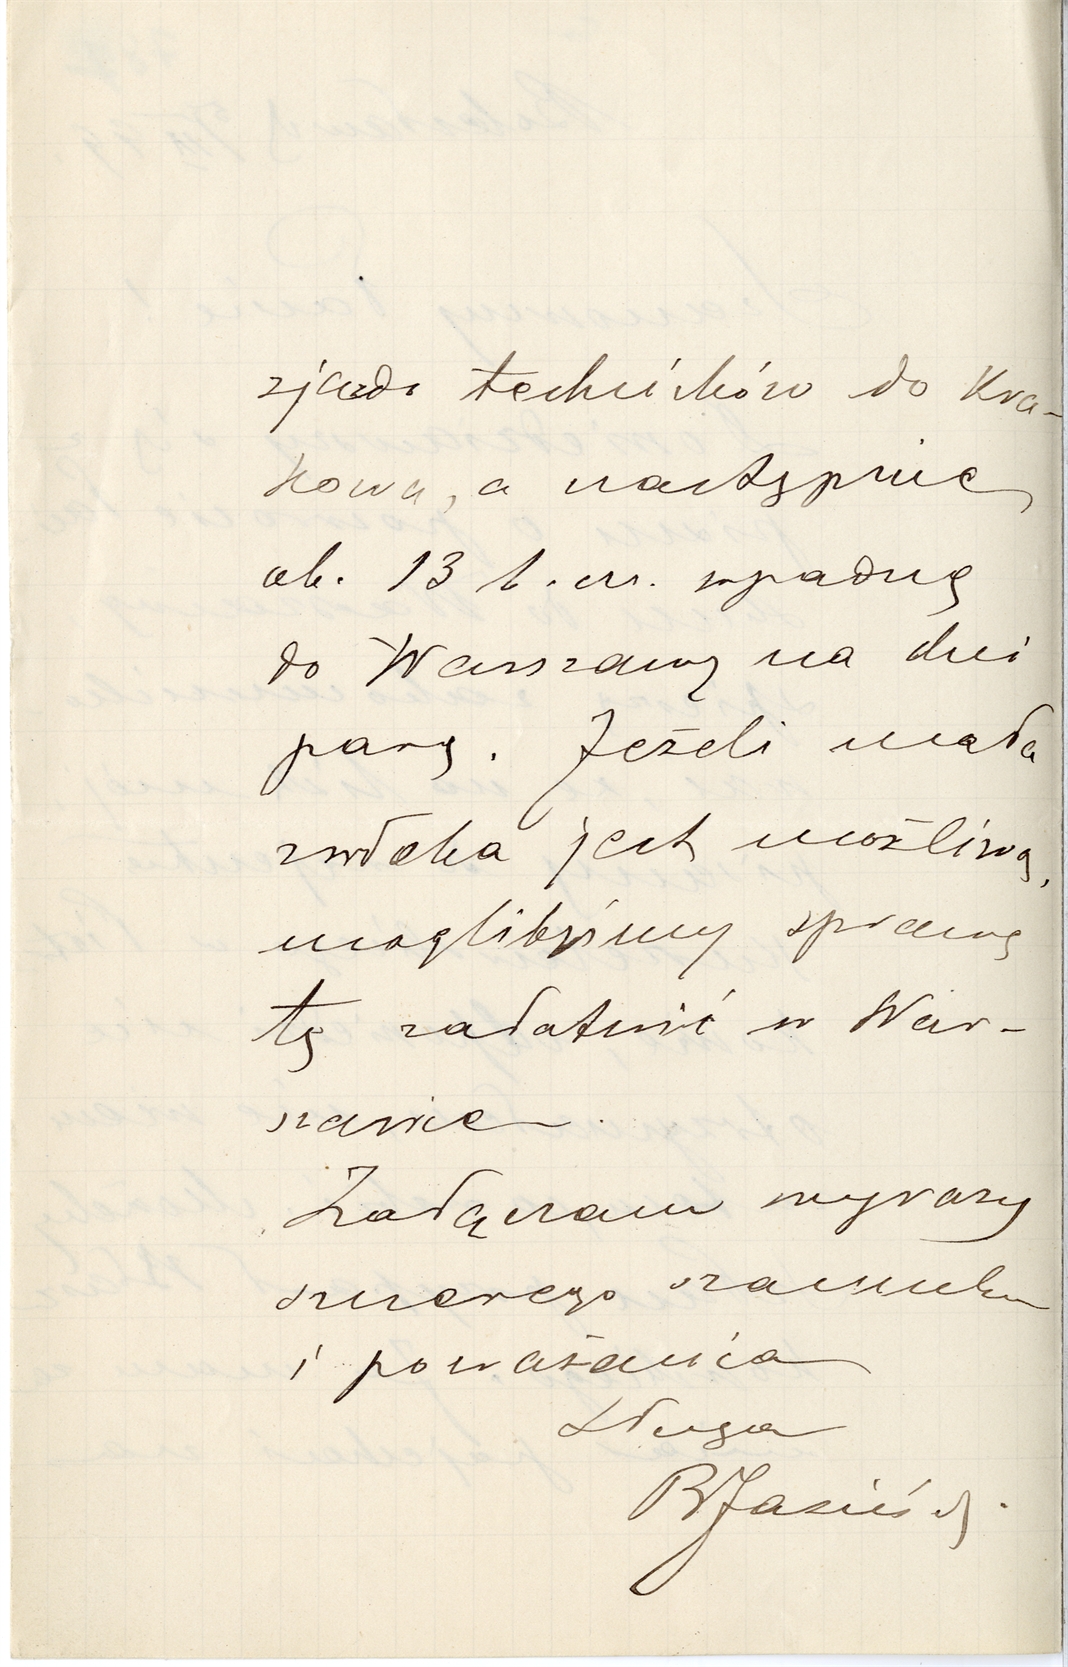 zjazd techników do Kra-
kowa, a następnie
ok. 13 b. m. wpadnę
do Warszawy na dni
parę. Jeżeli mała
zwłoka jest możliwą,
moglibyśmy sprawę
tę załatwić w War-
szawie.
Załączam wyrazy
szczerego szacunku
i poważania
Sługa
B Jasiński.